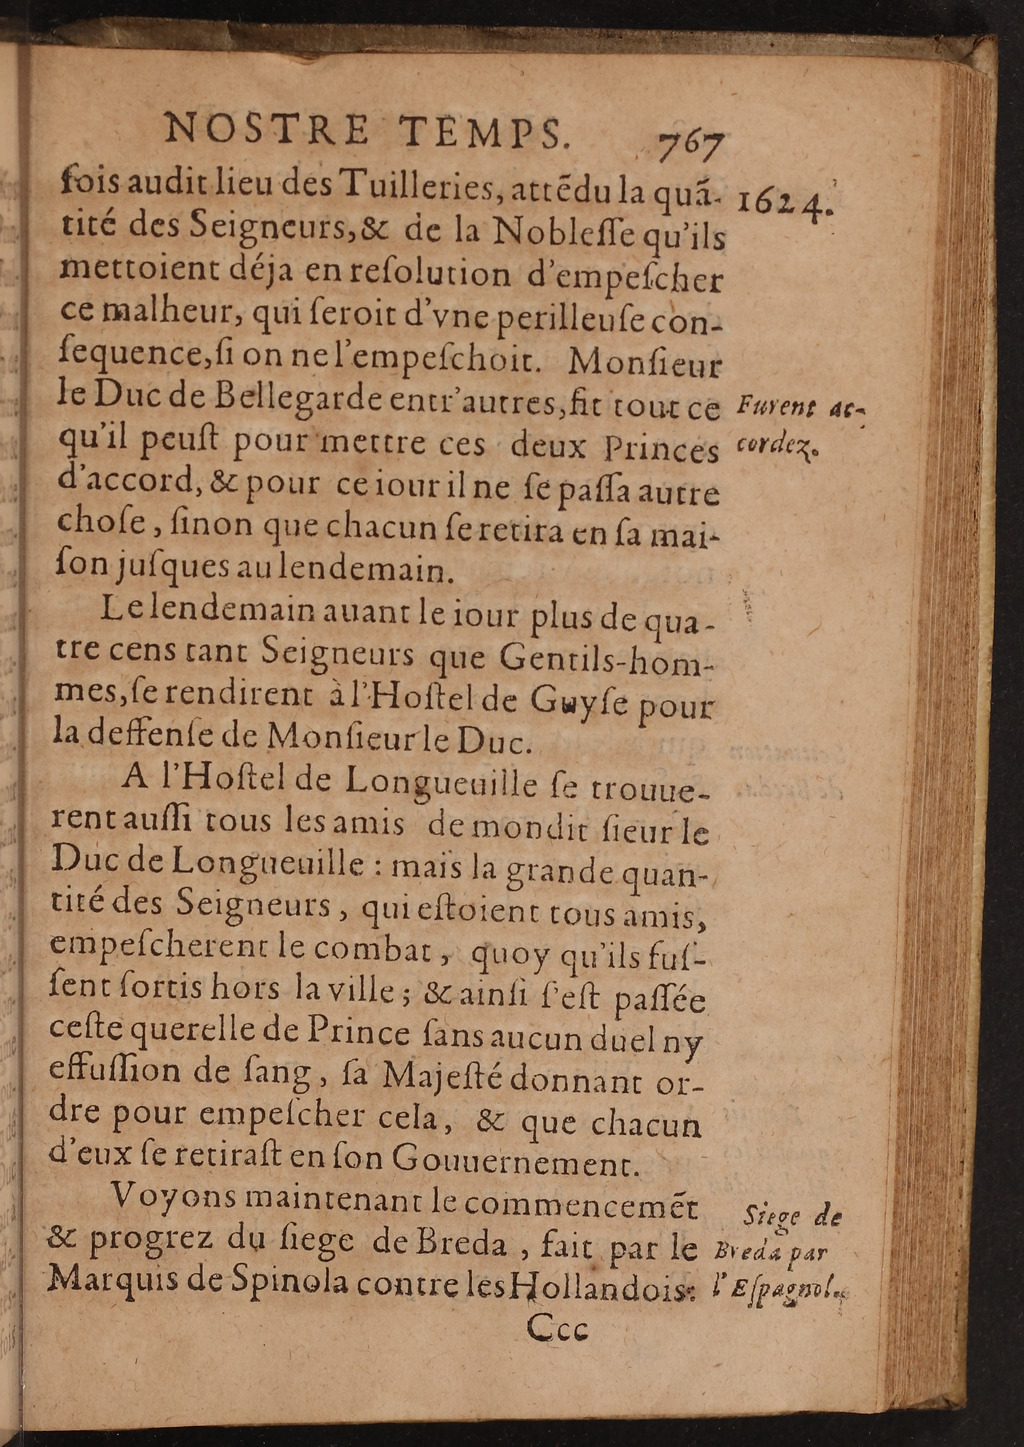 NOSTRE TEMPS. 767
fois audit lieu des Tuilleries, attēdu la quā- 1624.
tité des Seigneurs, & de la Nobleſſe qu'ils
mettoient déja en reſolution d'empeſcher
ce malheur, qui ſeroit d'vne perilleuſe con-
ſequence, ſi on ne l'empeſchoit. Monſieur
le Duc de Bellegarde entr'autres, fit tout ce Furent ac-
qu'il peuſt pour mettre ces deux Princes cordez.
d'accord, & pour ce iour il ne ſe paſſa autre
choſe, ſinon que chacun ſe retira en ſa mai-
ſon juſques au lendemain.
Le lendemain auant le iour plus de qua-
tre cens tant Seigneurs que Gentils-hom-
mes, ſe rendirent à l'Hoſtel de Guyſe pour
la deffenſe de Monſieur le Duc.
A l'Hoſtel de Longueuille ſe trouue-
rent auſſi tous les amis de mondit ſieur le
Duc de Longueuille : mais la grande quan-
tité des Seigneurs, qui eſtoient tous amis,
empeſcherent le combat, quoy qu'ils fuſ-
ſent ſortis hors la ville; & ainſi ſ'eſt paſſée
ceſte querelle de Prince ſans aucun duel ny
effuſſion de ſang, ſa Majeſté donnant or-
dre pour empeſcher cela, & que chacun
d'eux ſe retiraſt en ſon Gouuernement.
Voyons maintenant le commencemēt Siege de
& progrez du ſiege de Breda, fait par le Breda par
Marquis de Spinola contre les Hollandois: l'Eſpagnol.
Ccc